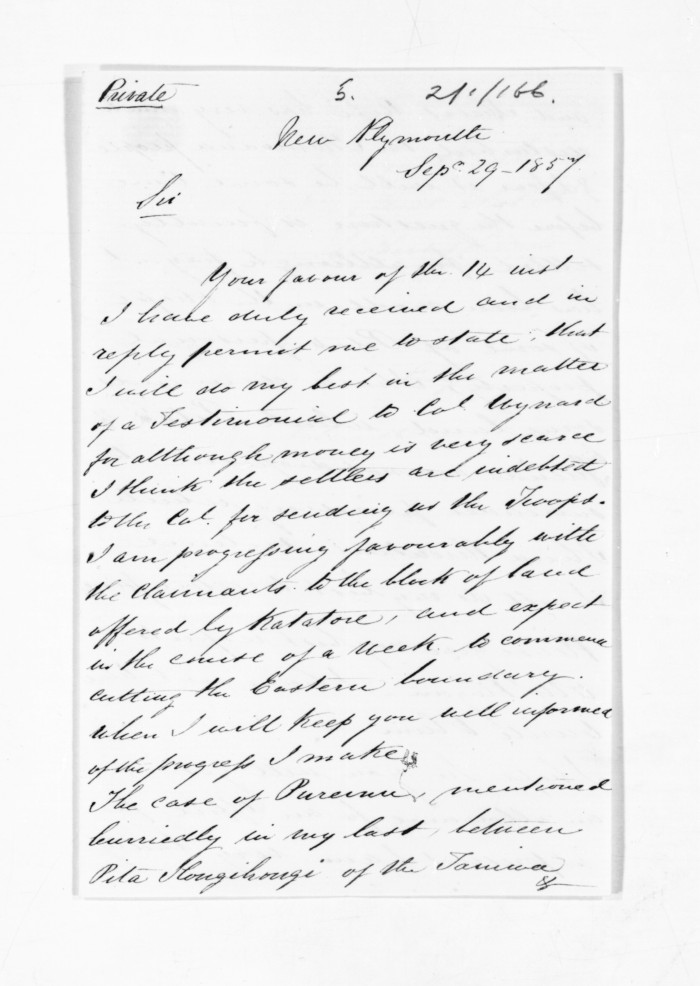 Private 5. 21/1/166.
New Plymouth
Sepr. 29 - 1857.
Sir
Your favour of the 14 inst
I have duly received and in
reply permit me to state, that
I will do my best in the matter
of a Testimonial to Col. Wynyard
for although money is very scarce
I think the settlers are indebted
to the Col. for sending us the Troops.
I am progressing favourably with
the claimants to the block of land
offered by Katatore, and expect
in the course of a week to commence
cutting the Eastern boundary.
when I will keep you well informed
of the progress I make
The case of mentioned
hurriedly in my last, between
Pita Hongihongi of the Taniwa